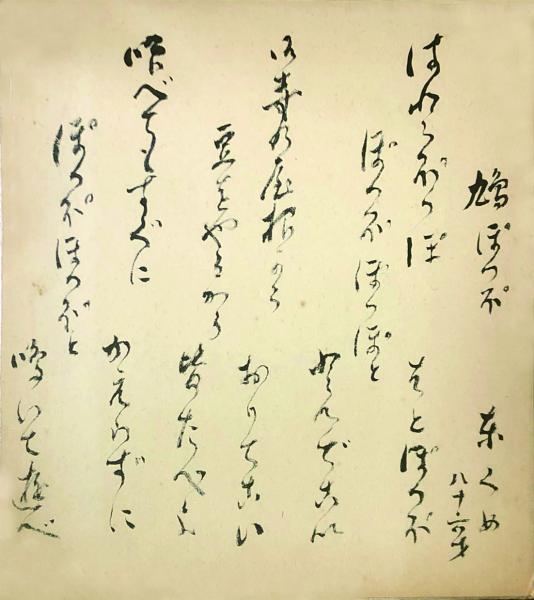 鳩ぽつぽ
東くめ
八十六才
はとぽつぽ はとぽつぽ
ぽつぽぽつぽと とんでこい
お寺の屋根から おりてこい
豆をやるから 皆たべよ
喰べてもすぐに かえらずに
ぽつぽぽつぽと 鳴いて遊べ